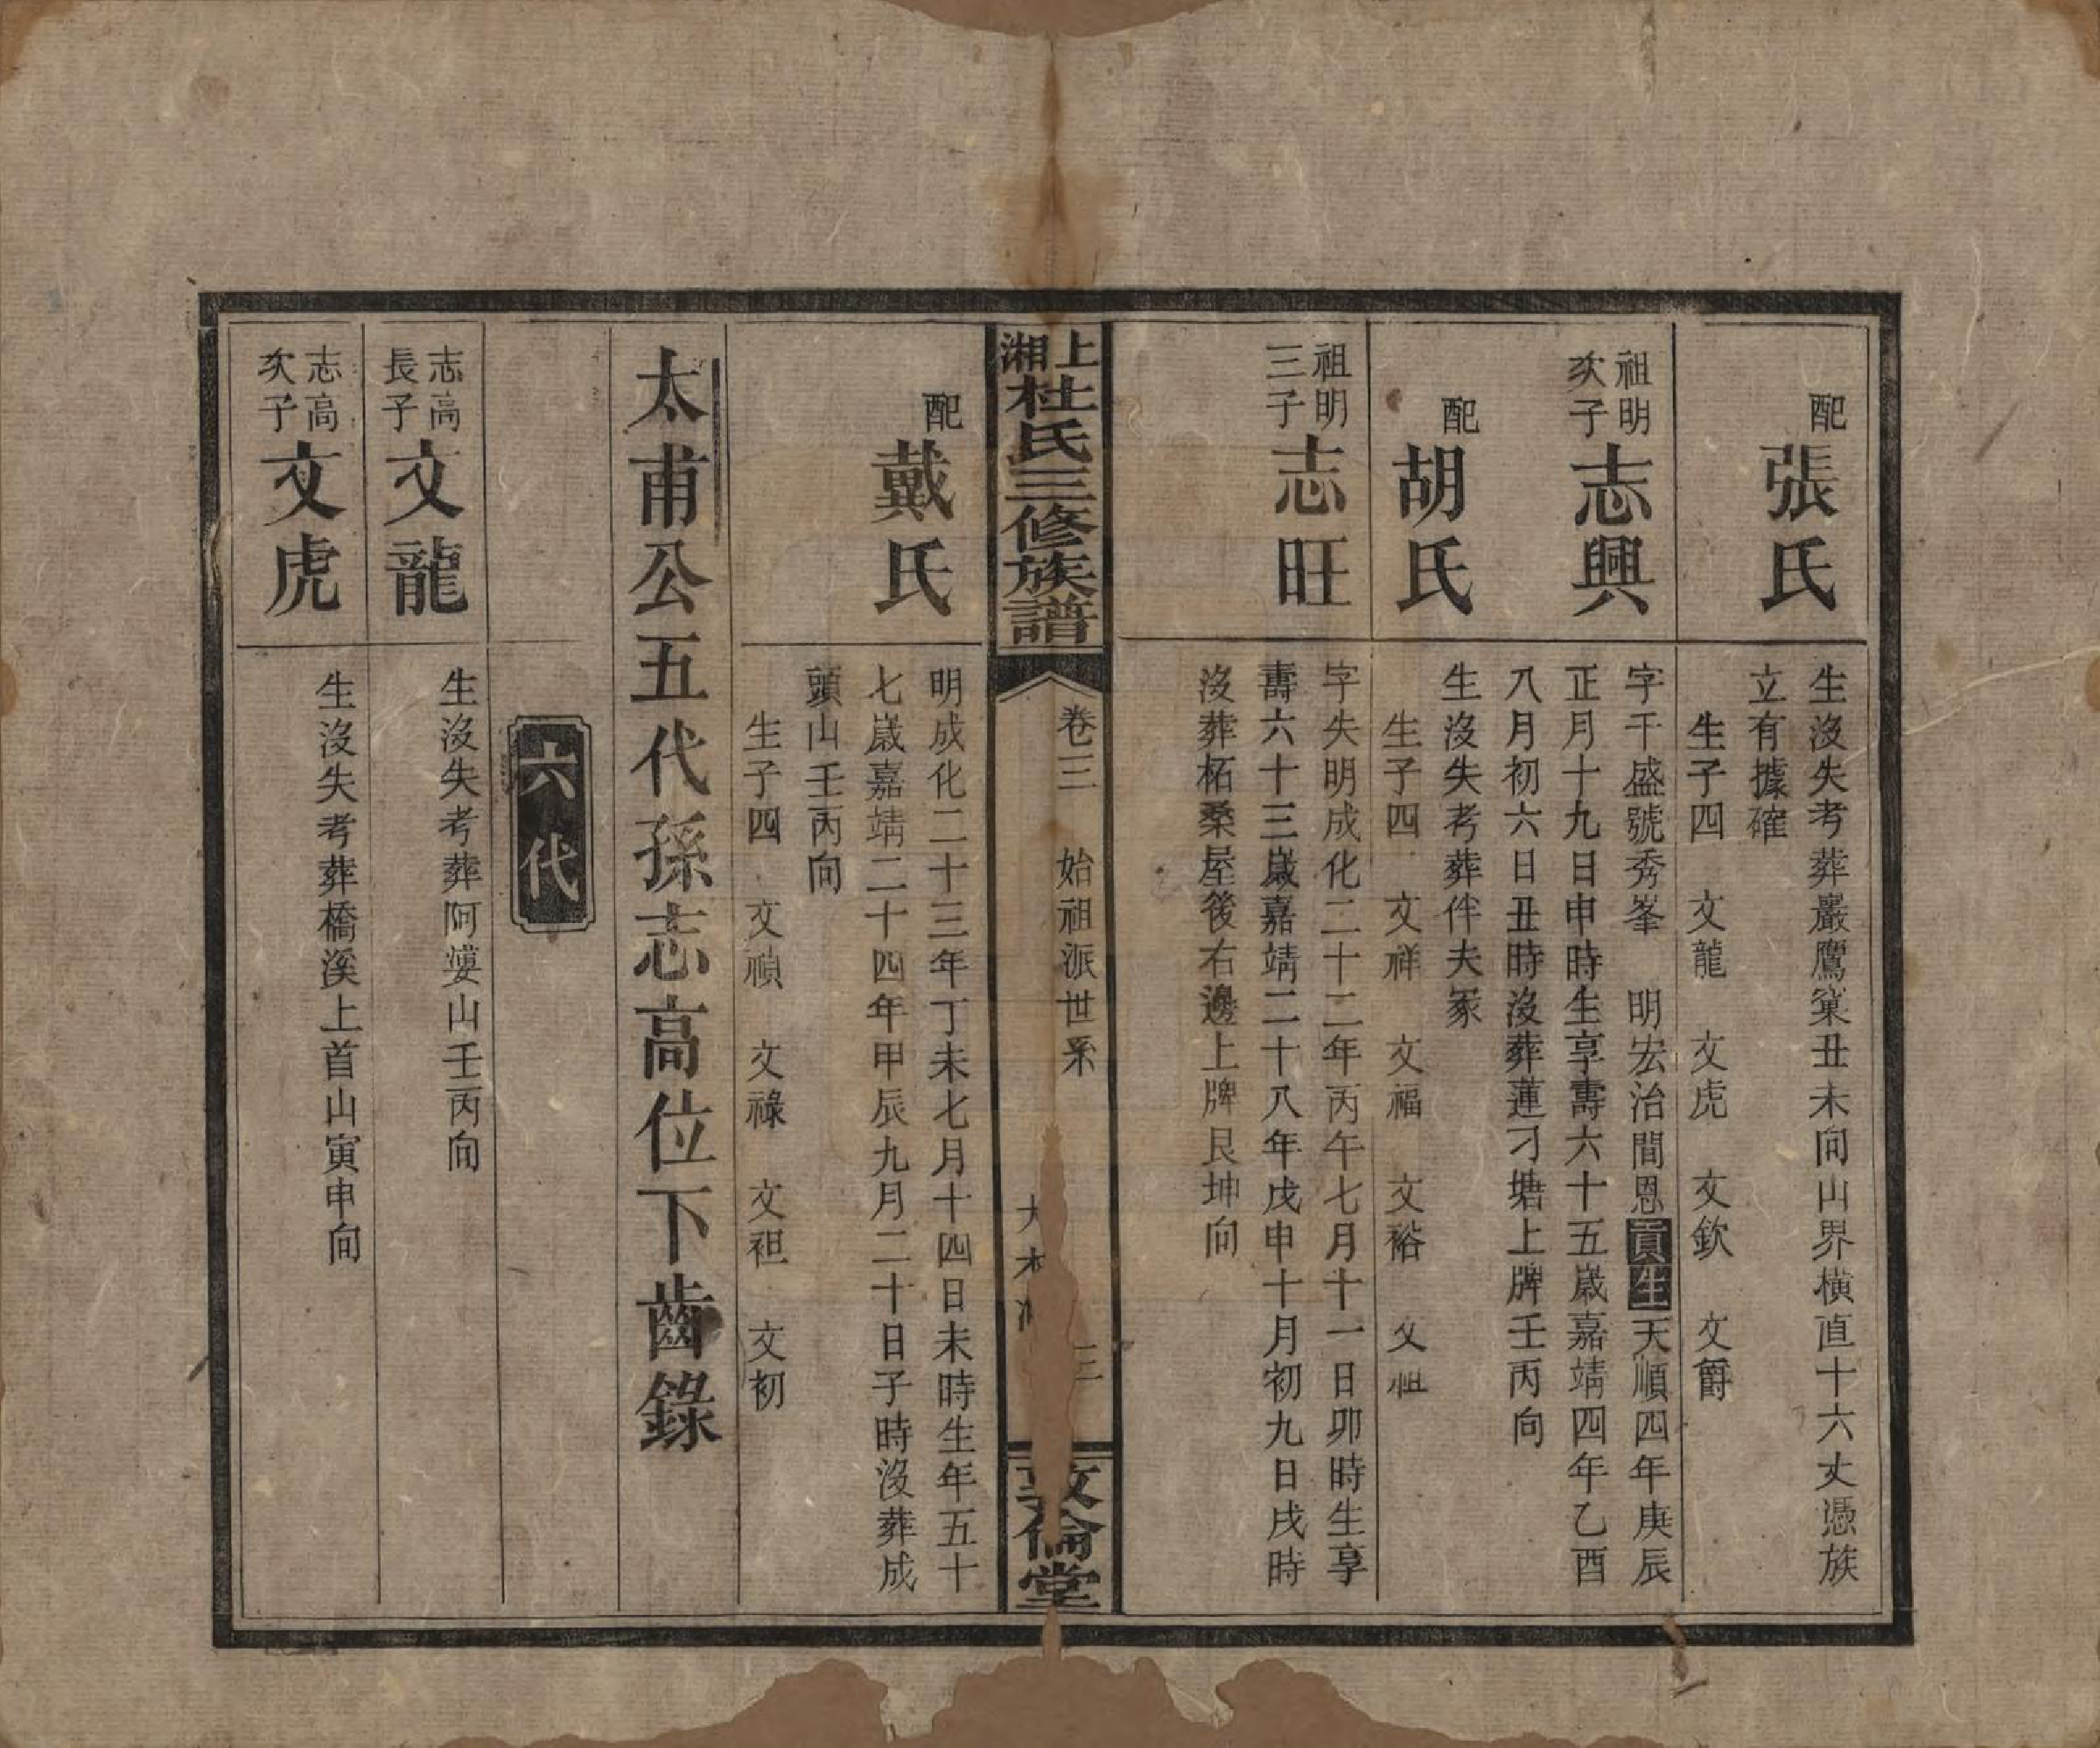 配
張氏
生沒失考葬嚴鷹窠丑未向山界橫直十六丈憑族
立有據確
生子四　文龍　文虎　文欽　文爵
祖明
次子
志興
字千盛號秀峯　明宏治間恩貢生天順四年庚辰
正月十九日申時生享壽六十五歲嘉靖四年乙酉
八月初六日丑時沒葬蓮刁塘上牌壬丙向
配
胡氏
生沒失考葬伴夫冢
生子四　文祥　文福　文裕　文祖
祖明
三子
志旺
字失明成化二十二年丙午七月十一日卯時生享
壽六十三歲嘉靖二十八年戊申十月初九日戌時
沒葬柘桑屋後右邊上牌艮坤向
上湘杜氏三修族譜
卷三　始祖派世系
大木
三
敦倫堂
配
戴氏
明成化二十三年丁未七月十四日未時生年五十
七歲嘉靖二十四年甲辰九月二十日子時沒葬成
頭山壬丙向
生子四　文禎　文祿　文袓　文初
太甫公五代孫志高位下齒錄
六代
志高
長子
文龍
生沒失考葬阿婆山壬丙向
志高
次子
文虎
生沒失考葬橋溪上首山寅申向